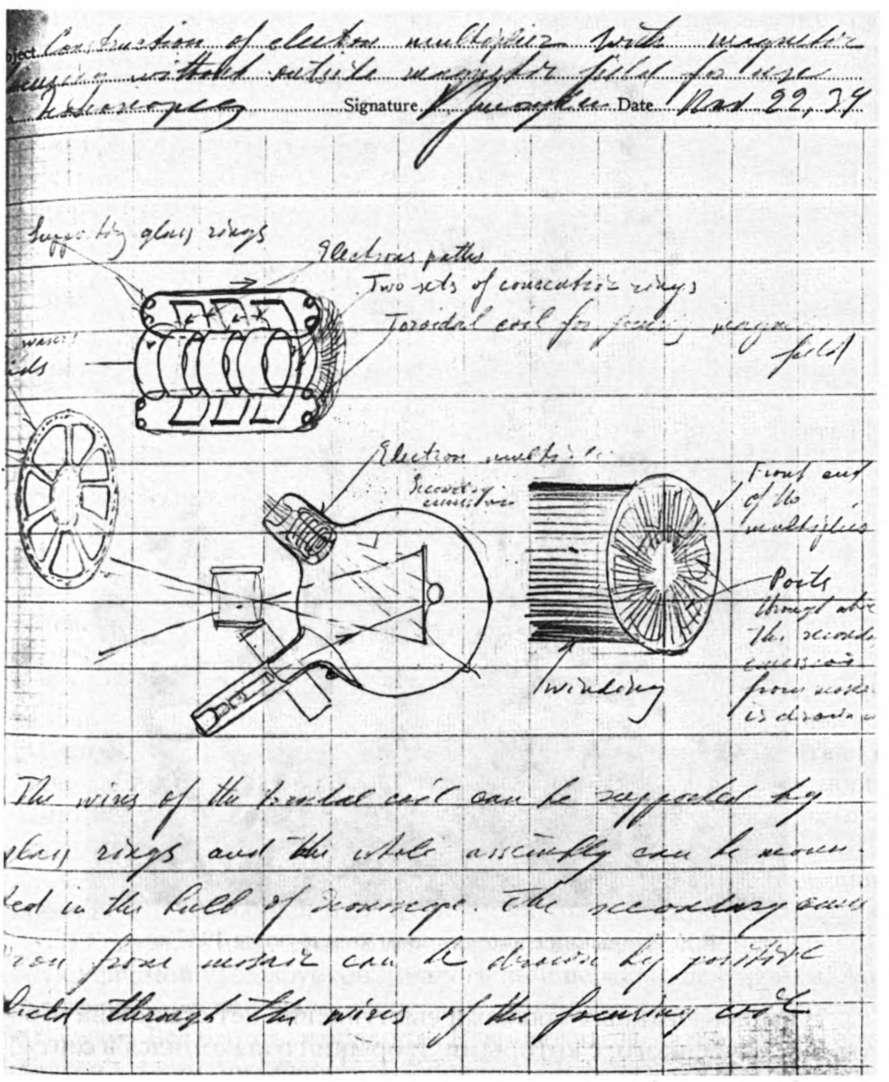 Construction of electron multiplier with magnetic
focusing without outside magnetic field for use
Iconoscopes Signature Date Nov 22, 34
Supporting glass rings
Electrons paths
Two sets of concentric rings
Toroidal coil for focusing magn.
field
Electron multi
Secondary
emission
Front end
of the
multiplier
Ports
through
the second
emission
from mosa
is drawn
Winding
The wires of the toroidal coil can be supported by
glass rings and the whole assembly can be moun-
ted in the bulb of iconoscope. The secondary emis
from mosaic can be drawn by positive
field through the wires of the focusing coil